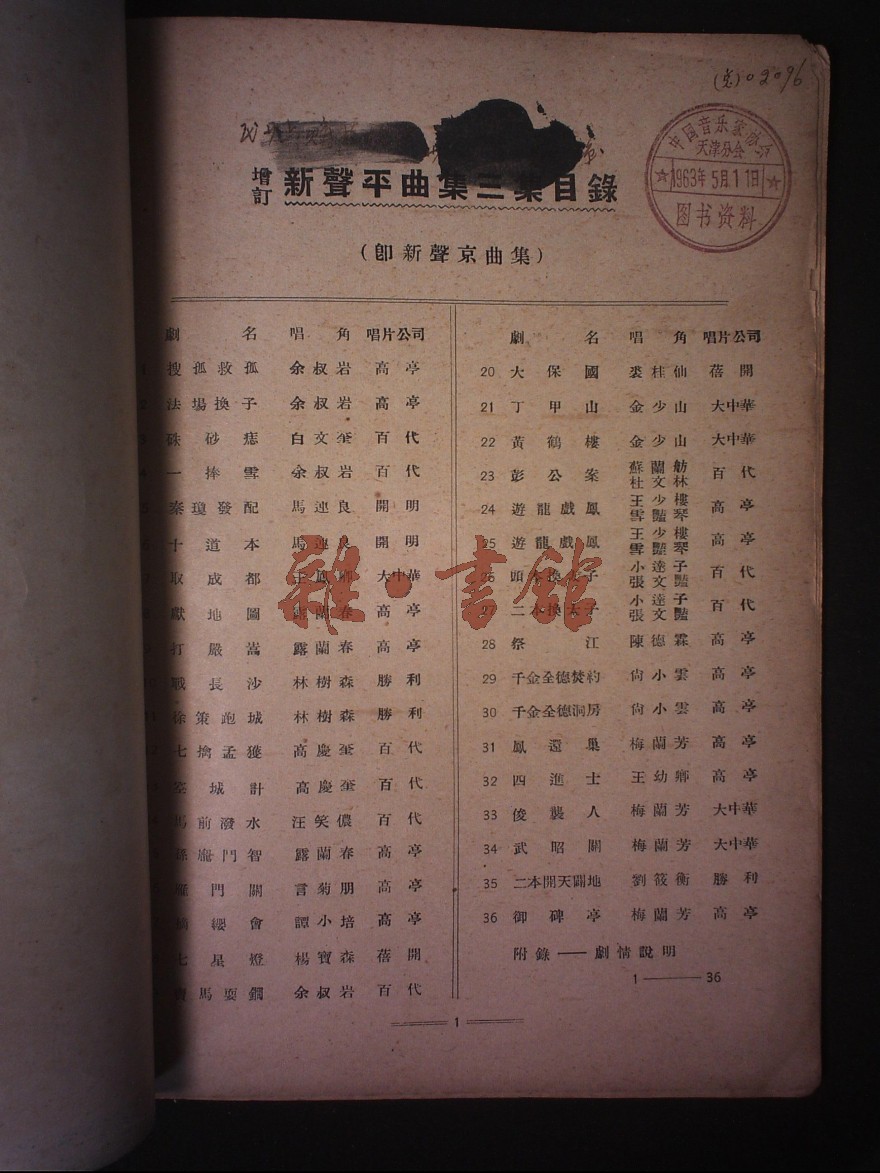 (总)02096
中国音乐家协会
天津分会
1963年5月11日
图书资料
增訂 新聲平曲集三集目錄
(卽新聲京曲集)
劇名 唱角 唱片公司
搜孤救孤 余叔岩 高亭
法場換子 余叔岩 高亭
硃砂痣 白文奎 百代
一捧雪 余叔岩 百代
秦瓊發配 馬連良 開明
十道本 馬連良 開明
取成都 王鳳卿 大中華
獻地圖 露蘭春 高亭
打嚴嵩 露蘭春 高亭
戰長沙 林樹森 勝利
徐策跑城 林樹森 勝利
七擒孟獲 高慶奎 百代
空城計 高慶奎 百代
馬前潑水 汪笑儂 百代
孫龐鬥智 露蘭春 高亭
雁門關 言菊朋 高亭
摘纓會 譚小培 高亭
七星燈 楊寶森 蓓開
賣馬耍鐧 余叔岩 百代
劇名 唱角 唱片公司
20 大保國 裘桂仙 蓓開
21 丁甲山 金少山 大中華
22 黃鶴樓 金少山 大中華
23 彭公案 蘇蘭舫 杜文林 百代
24 遊龍戲鳳 王少樓 雪豔琴 高亭
25 遊龍戲鳳 王少樓 雪豔琴 高亭
26 頭本換太子 小達子 張文豔 百代
27 二本換太子 小達子 張文豔 百代
28 祭江 陳德霖 高亭
29 千金全德焚約 尙小雲 高亭
30 千金全德洞房 尙小雲 高亭
31 鳳還巢 梅蘭芳 高亭
32 四進士 王幼卿 高亭
33 俊襲人 梅蘭芳 大中華
34 武昭關 梅蘭芳 大中華
35 二本開天闢地 劉筱衡 勝利
36 御碑亭 梅蘭芳 高亭
附錄——劇情說明
1——36
1
雜·書館